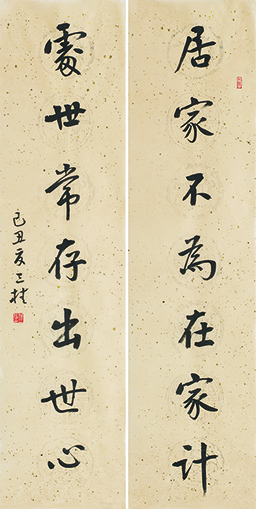 居家不為在家計
處世常存出世心
己丑夏三村